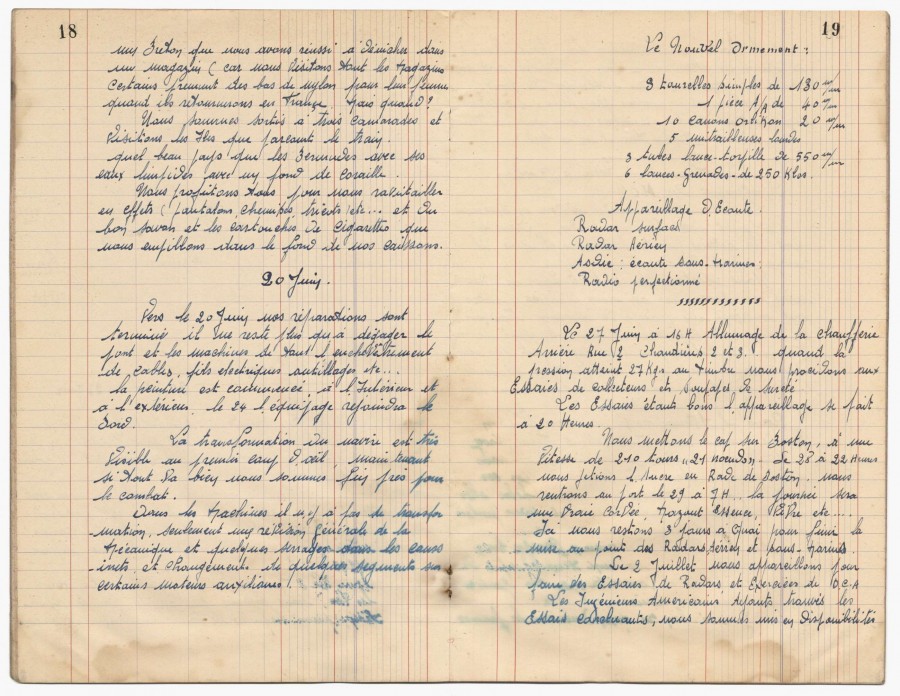 18
une Breton que nous avons réussi à dénicher dans
un magazin ( car nous visitons tout les magazins
certains prennent des bas de nylon pour leur femme
quand ils retournerons en France, mais quand ?
Nous sommes sortis à trois camarades et
visitions les Iles que parcourt le train.
quel beau pays que les Bermudes avec ses
eaux limpides avec un fond de coraille.
Nous profitons tous pour nous ravitailler
en effets ( pantalon, chemises, tricots) etc... et du
bon savon et les cartouches de Cigarettes que
nous empillons dans le fond de nos caissons.
20 Juin.
Vers le 20 Juin nos réparations sont
terminée il ne reste plus qu'à dégager le
pont et les machines de tout l'enchevêtrement
de cables, fils electriques outillages etc...
la peinture est commencée à l'Intérieur et
à l'extérieur. le 24 l'équipage rejoindra le
Bord.
La transformation du navire est très
visible au premier coup d'œil, maintenant
si tout va bien nous sommes fin près pour
le combat.
Dans les machines il n'y a pas de transfor
mation, seulement une révision générale de la
mécanique et quelques serrages dans les couss
inets et changement de quelques segments sur
certains moteurs auxilières.
19
Le Nouvel Armement :
3 tourelles simples de 130 m/m
1 pièce A/A de 40 m/m
10 canons orlikon 20 m/m
5 mitrailleuses lourdes
3 tubes lance-torpille de 550 m/m
6 lances-grenades-de 250 Klos.
Appareillage d'Ecoute.
Radar surface
Radar Aérien
Asdic : écoute sous-marines;
Radio perfectionné
Le 27 Juin à 16H Allumage de la chaufferie
Arrière Rue 2 Chaudières 2 et 3. quand la
pression atteint 27 Kgs au timbre nous procédons aux
Essaies de collecteurs et soupapes de sureté.
Les Essaies étants bons l'appareillage se fait
à 20 Heures.
Nous mettons le cap sur Boston, à une
Vitesse de 210 tours "21 noeuds". Le 28 à 22 Heures
nous jetions l'Ancre en Rade de Boston. nous
rentrons au port le 29 à 7H... la journée sera
une Vraie Corvée, Mazout Essence, Vivre etc...
Ici nous restions 3 jours à Quai pour finir la
mise au point des Radars, Aérien et sous-marins
Le 2 Juillet nous appareillons pour
faire des Essaies de Radars et Exercices de D.C.A
Les Ingénieurs Américains Ayants trouvés les
Essais concluants, nous sommes mis en disponibilités